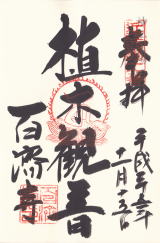 奉拝
平成二十五年
十一月十五日
植木観音
百済寺